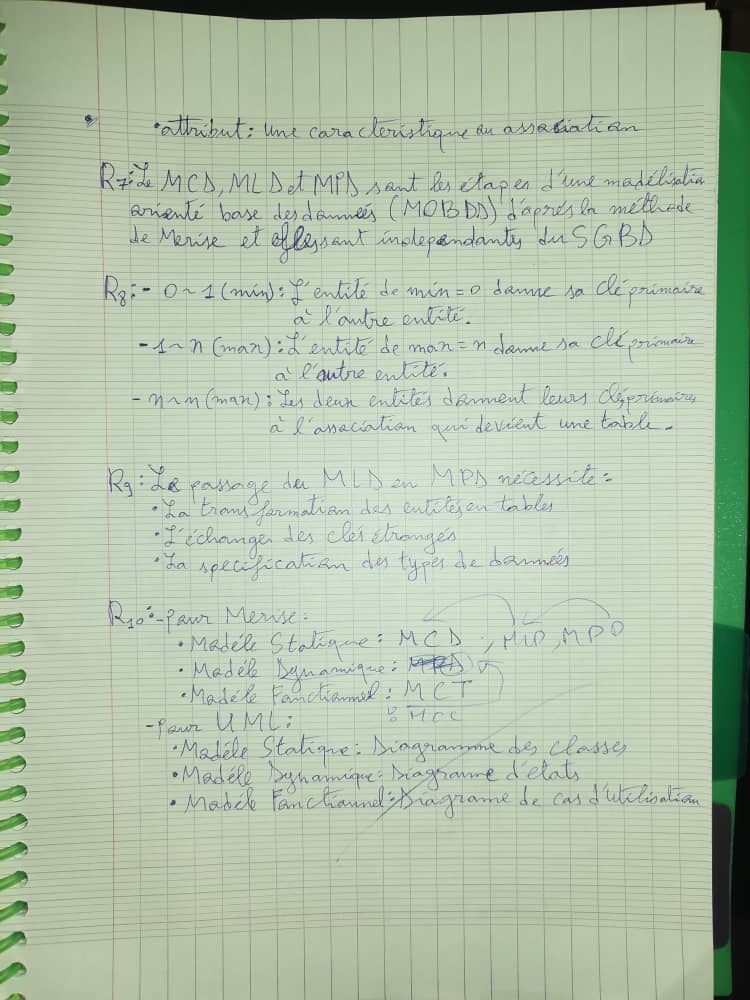 • attribut: Une caractéristique ou association
R7: Le MCD, MLD et MPD sont les étapes d'une modélisation
orienté base des données (MOBDD) d'après la méthode
de Merise et elles sont independants du SGBD
R8: - 0 ~ 1 (min): L'entité de min = 0 donne sa clé primaire
à l'autre entité.
- 1 ~ n (max): L'entité de max = n donne sa clé primaire
à l'autre entité.
- n ~ n (max): Les deux entités donment leurs clés primaires
à l'association qui devient une table.
R9: Le passage du MLD en MPD nécessite:
• La transformation des entités en tables
• L'échanger des clés étrangés
• La specification des types de données
R10: - pour Merise:
• Modéle Statique: MCD, MLD, MPD
• Modéle Dynamique:
• Modéle Fonctionnel: MCT
MCC
- pour UML:
• Modéle Statique: Diagramme des classes
• Modéle Dynamique: Diagramme d'états
• Modéle Fonctionnel: Diagrame de cas d'utilisation